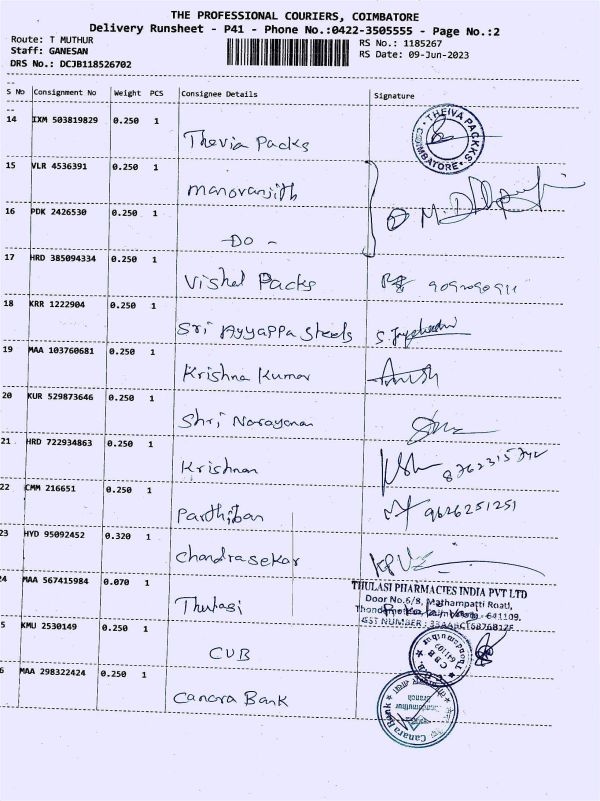 THE PROFESSIONAL COURIERS, COIMBATORE
Delivery Runsheet - P41 - Phone No.:0422-3505555 - Page No.:2
Route: T MUTHUR
RS No.: 1185267
Staff: GANESAN
RS Date: 09-Jun-2023
DRS No.: DCJB118526702
S No Consignment No Weight PCS Consignee Details Signature
14 IXM 503819829 0.250 1
Thevia Packs
THEIVA PACKKS COIMBATORE
15 VLR 4536391 0.250 1
Manoranjith
16 PDK 2426530 0.250 1
-DO-
17 HRD 385094334 0.250 1
Vishal Packs
18 KRR 1222904 0.250 1
Sri Ayyappa Steels
19 MAA 103760681 0.250 1
Krishna Kumar
20 KUR 529873646 0.250 1
Shri Narayanan
21 HRD 722934863 0.250 1
Krishnan
22 CMM 216651 0.250 1
Parthiban 9626251251
23 HYD 95092452 0.320 1
Chandrasekar
24 MAA 567415984 0.070 1
Thulasi
THULASI PHARMACIES INDIA PVT LTD
Door No.6/8, Mathampatti Road,
641109.
GST NUMBER :
5 KMU 2530149 0.250 1
CUB
C.B.B. 641109
6 MAA 298322424 0.250 1
Canara Bank
Canara Bank